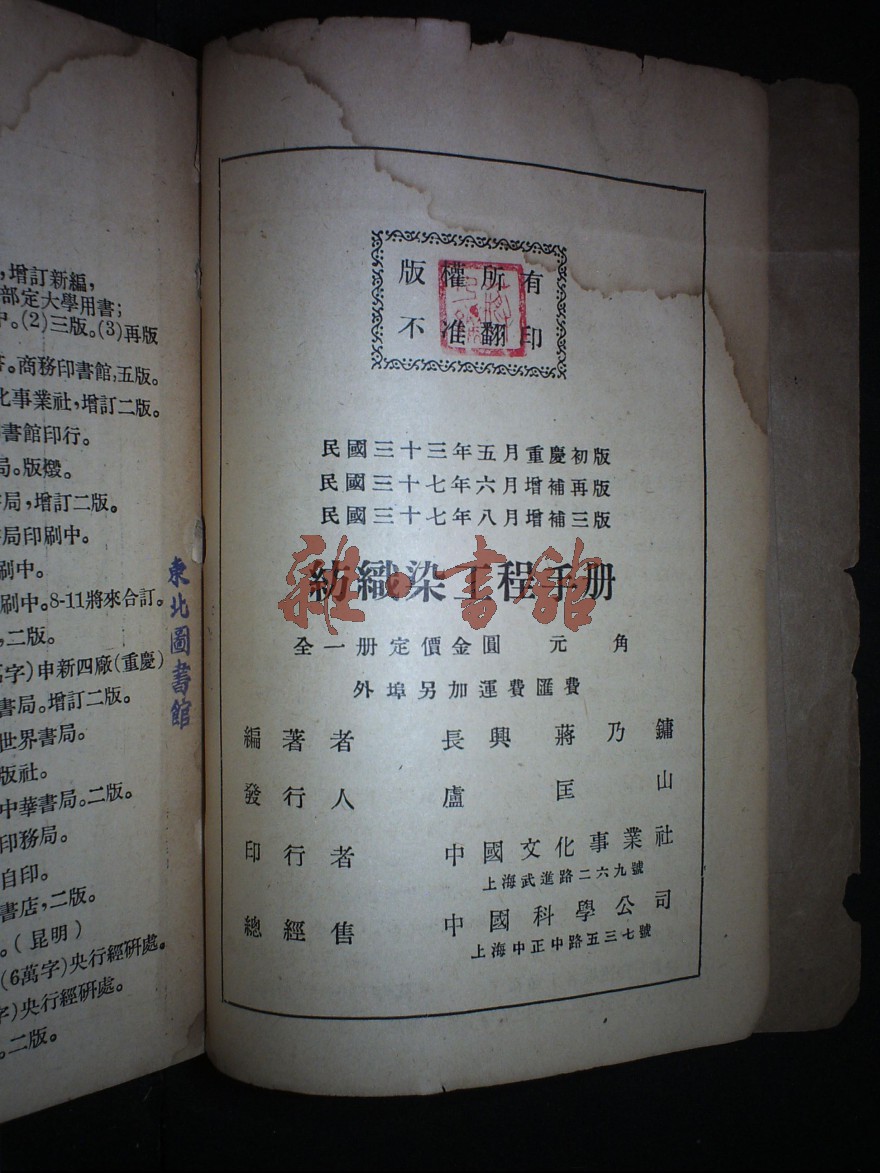 ，增訂新編，
部定大學用書；
。(2)三版。(3)再版
。商務印書館，五版。
化事業社，增訂二版。
書館印行。
局。版燬。
書局，增訂二版。
書局印刷中。
刷中。
刷中。8-11將來合訂。
，二版。
萬字)申新四廠(重慶)
書局。增訂二版。
世界書局。
版社。
中華書局。二版。
印務局。
自印。
書店，二版。
。(昆明)
(6萬字)央行經研處。
字)央行經研處。
。二版。
東北圖書館
版權所有
不准翻印
民國三十三年五月重慶初版
民國三十七年六月增補再版
民國三十七年八月增補三版
紡織染工程手册
雜·書館
全一册定價金圓 元 角
外埠另加運費匯費
編著者 長興 蔣乃鏞
發行人 盧匡山
印行者 中國文化事業社
上海武進路二六九號
總經售 中國科學公司
上海中正中路五三七號